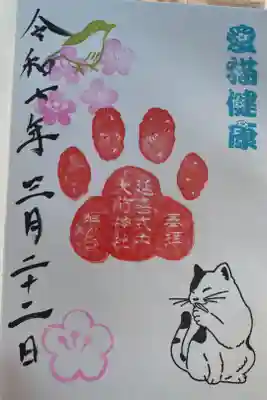 愛猫健康
奉拝
延喜式内
大前神社
令和七年三月二十二日